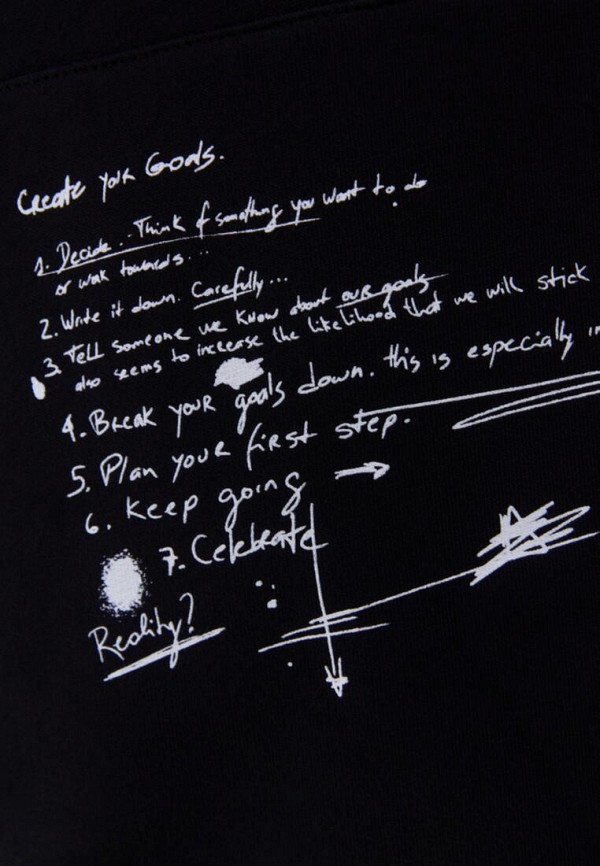 Create your Goals.
1. Decide.. Think of something you want to do
or work towards...
2. Write it down. Carefully...
3. Tell someone we know about our goals
also seems to increase the likelihood that we will stick
4. Break your goals down. this is especially
5. Plan your first step.
6. Keep going →
7. Celebrate
Reality?